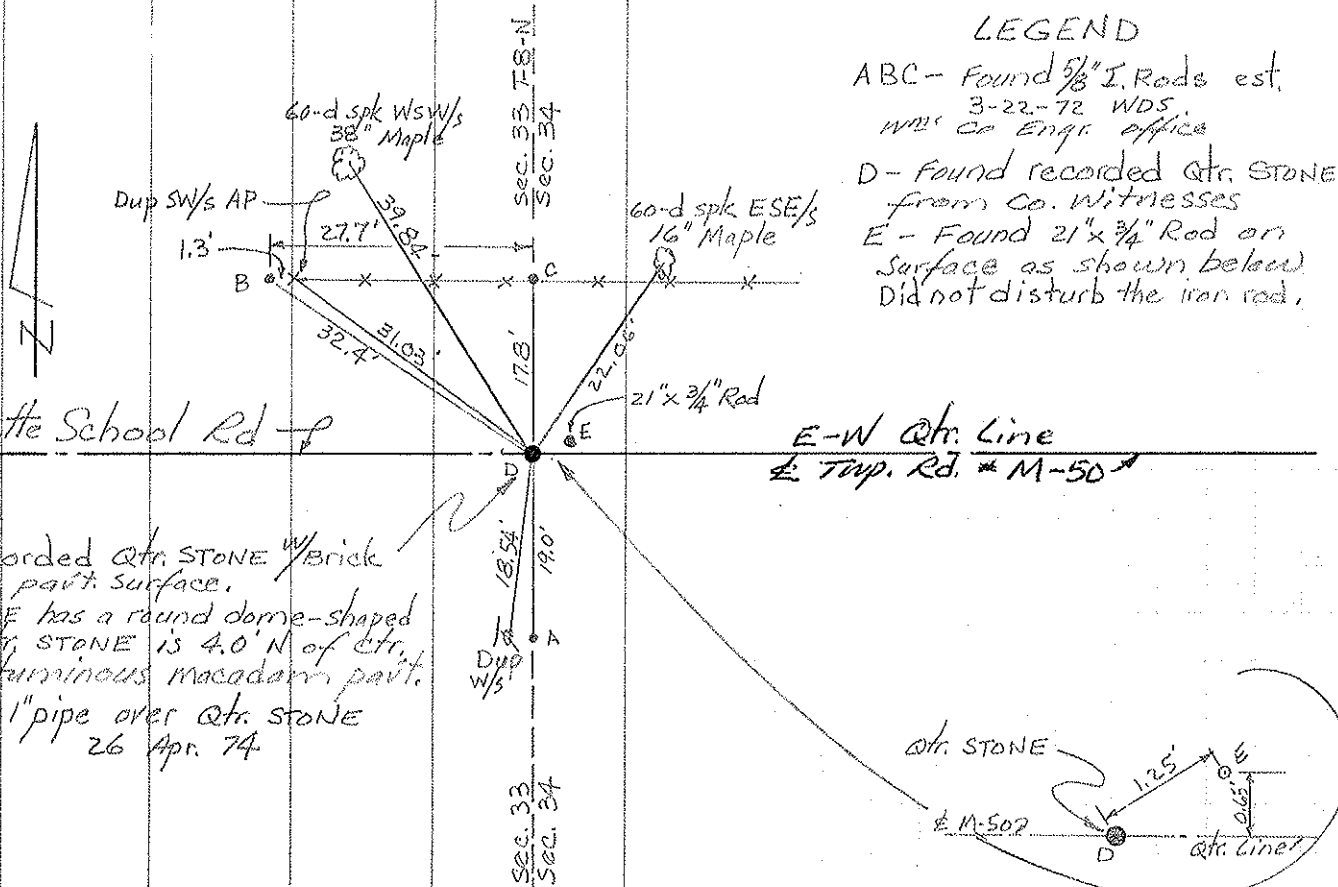 LEGEND
ABC- Found 5/8" I. Rods est.
3-22-72 WDS.
Wms Co Engr. office
D- Found recorded Qtr. STONE
from Co. Witnesses
E- Found 21"x 3/4" Rod on
Surface as shown below
Did not disturb the iron rod.
Sec. 33 T-8-N
Sec. 34
60-d spk WSW/s
38" Maple
Dup SW/s AP
1.3'
27.7'
39.84'
B
C
60-d spk ESE/s
16" Maple
32.4'
31.03'
17.8'
22.06'
21"x 3/4" Rod
E
N
tte School Rd
D
E-W Qtr. Line
℄ Twp. Rd. # M-50
orded Qtr. STONE W/Brick
pav't. surface.
E has a round dome-shaped
r. STONE is 4.0' N of ctr.
tuminous macadam pav't.
1" pipe over Qtr. STONE
26 Apr. 74
18.54'
19.0'
A
Dup
W/s
Sec. 33
Sec. 34
Qtr. STONE
1.25'
E
0.65'
℄ M-50
D
Qtr. Line